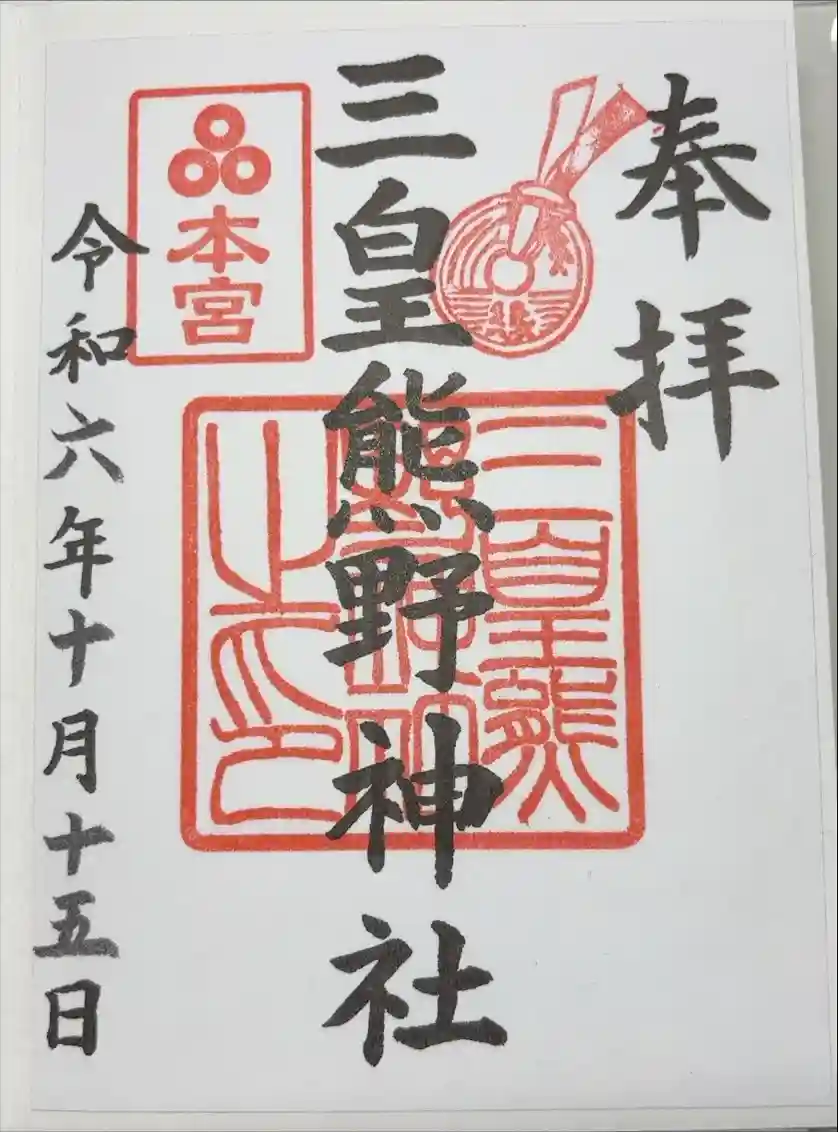 奉拝
三皇熊野神社
本宮
令和六年十月十五日
三皇熊
野神社
之印